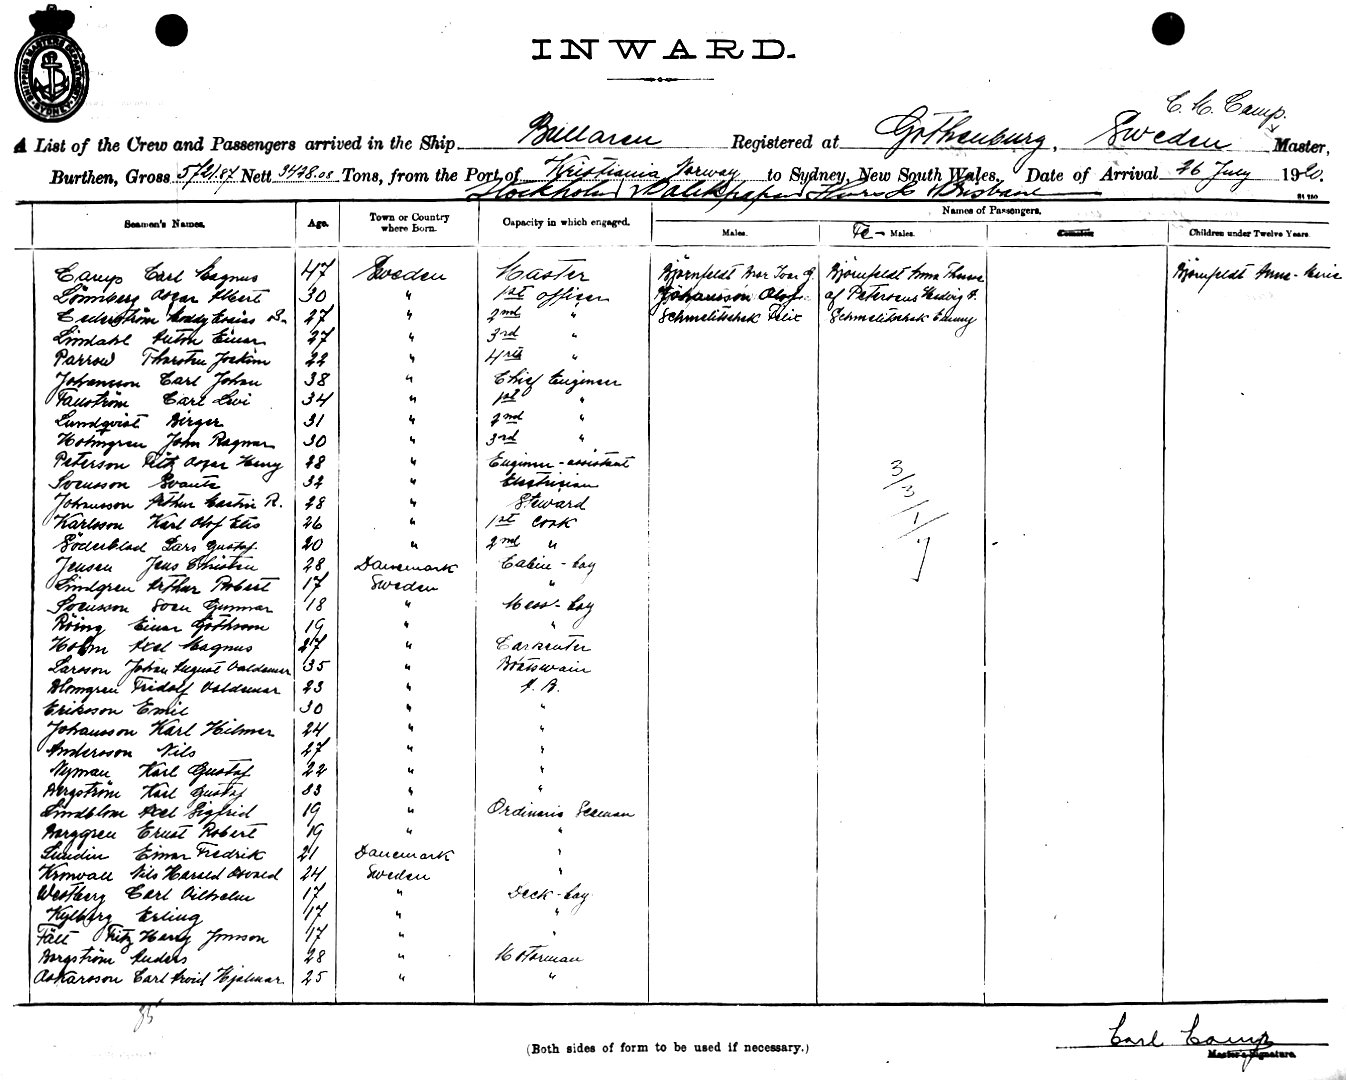 SHIPPING MASTERS DEPARTMENT SYDNEY
INWARD.
C. M. Camp.
A List of the Crew and Passengers arrived in the Ship Bullaren Registered at Gothenburg, Sweden Master,
Burthen, Gross 5721.87 Nett 3478.08 Tons, from the Port of Kristiania Norway to Sydney, New South Wales, Date of Arrival 26 July 1920.
Stockholm Balikpapan & Brisbane
Seamen's Names. Age. Town or Country where Born. Capacity in which engaged. Names of Passengers.
Males. Fe-Males. Children under Twelve Years.
Camp Carl Magnus 47 Sweden Master Björnfeldt Björnfeldt Anna Björnfeldt Anna-
Lönnberg Oscar Albert 30 " 1st officer Johansson Olof af Petersens Hedvig
Cederström 27 " 2nd " Schmelitschek Felix Schmelitschek Emmy
Lindahl Anton Einar 27 " 3rd "
Parrow Thorsten Joakim 22 " 4th "
Johansson Carl Johan 38 " Chief Engineer
Fallström Carl Levi 34 " 1st "
Lundqvist Birger 31 " 2nd "
Holmgren John Ragnar 30 " 3rd "
Peterson Fritz Oscar Harry 28 " Engineer-assistant
Svensson Svante 32 " Electrician
Johansson Arthur R. 28 " Steward
Karlsson Karl Olof Elis 26 " 1st Cook
Söderblad Lars Gustaf 20 " 2nd "
Jensen Jens Christian 28 Danemark Cabin-boy
Lindgren Arthur Robert 17 Sweden "
Svensson Sven Gunnar 18 " Mess-boy
Röing Einar Göthson 19 " "
Holm Axel Magnus 27 " Carpenter
Larsson Johan August Valdemar 35 " Boatswain
Blomgren Fridolf Valdemar 23 " A. B.
Eriksson Emil 30 " "
Johansson Karl Hilmer 24 " "
Andersson Nils 27 " "
Nyman Karl Gustaf 22 " "
Bergström Karl Gustaf 33 " "
Lindblom Axel Sigfrid 19 " Ordinaris Seaman
Borggren Ernst Robert 19 " "
Lundin Einar Fredrik 21 Danemark "
Kronvall Nils Harald Osvald 24 Sweden "
Westberg Carl Vilhelm 17 " Deck-boy
Kylberg Erling 17 " "
Fält Fritz Harry Jonsson 17 " "
Borgström Anders 28 " Motorman
Oskarsson Carl Arvid Hjalmar 25 " "
3/3/1/7
35
Carl Camp
(Both sides of form to be used if necessary.)
Master's Signature.